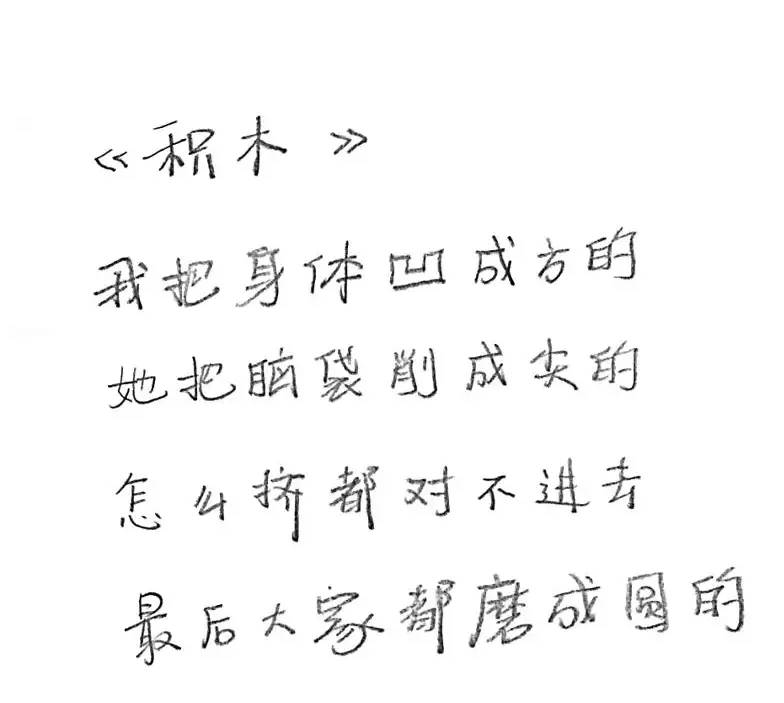 《积木》
我把身体凹成方的
她把脑袋削成尖的
怎么挤都对不进去
最后大家都磨成圆的